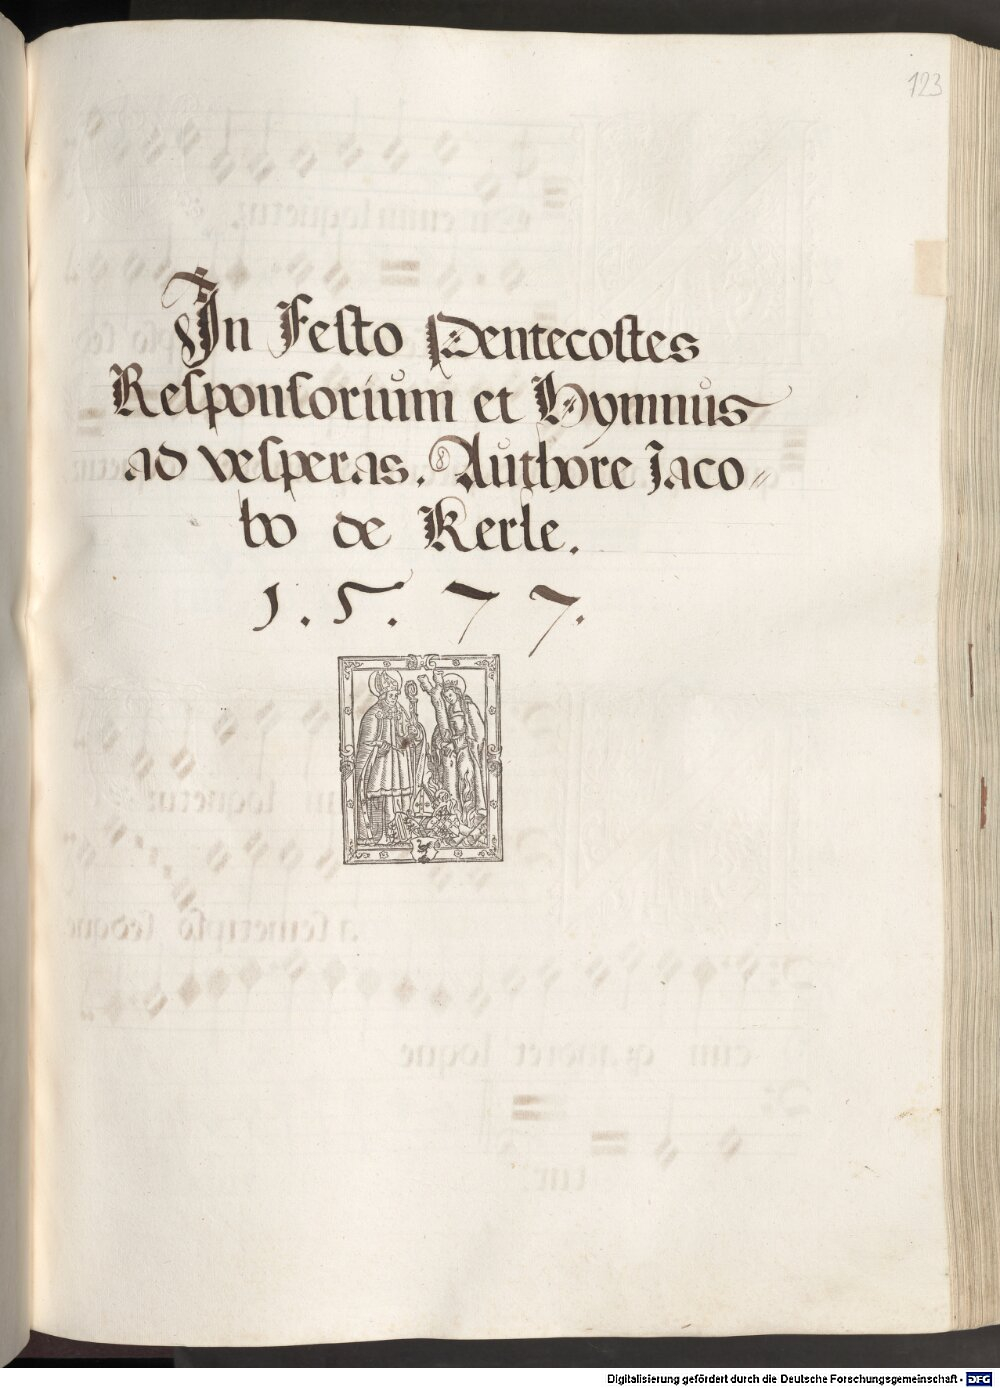 123
In Festo Pentecostes
Responsorium et Hymnus
ad vesperas. Authore Jaco〃
bo de Kerle.
1.5.77.
Digitalisierung gefördert durch die Deutsche Forschungsgemeinschaft - DFG